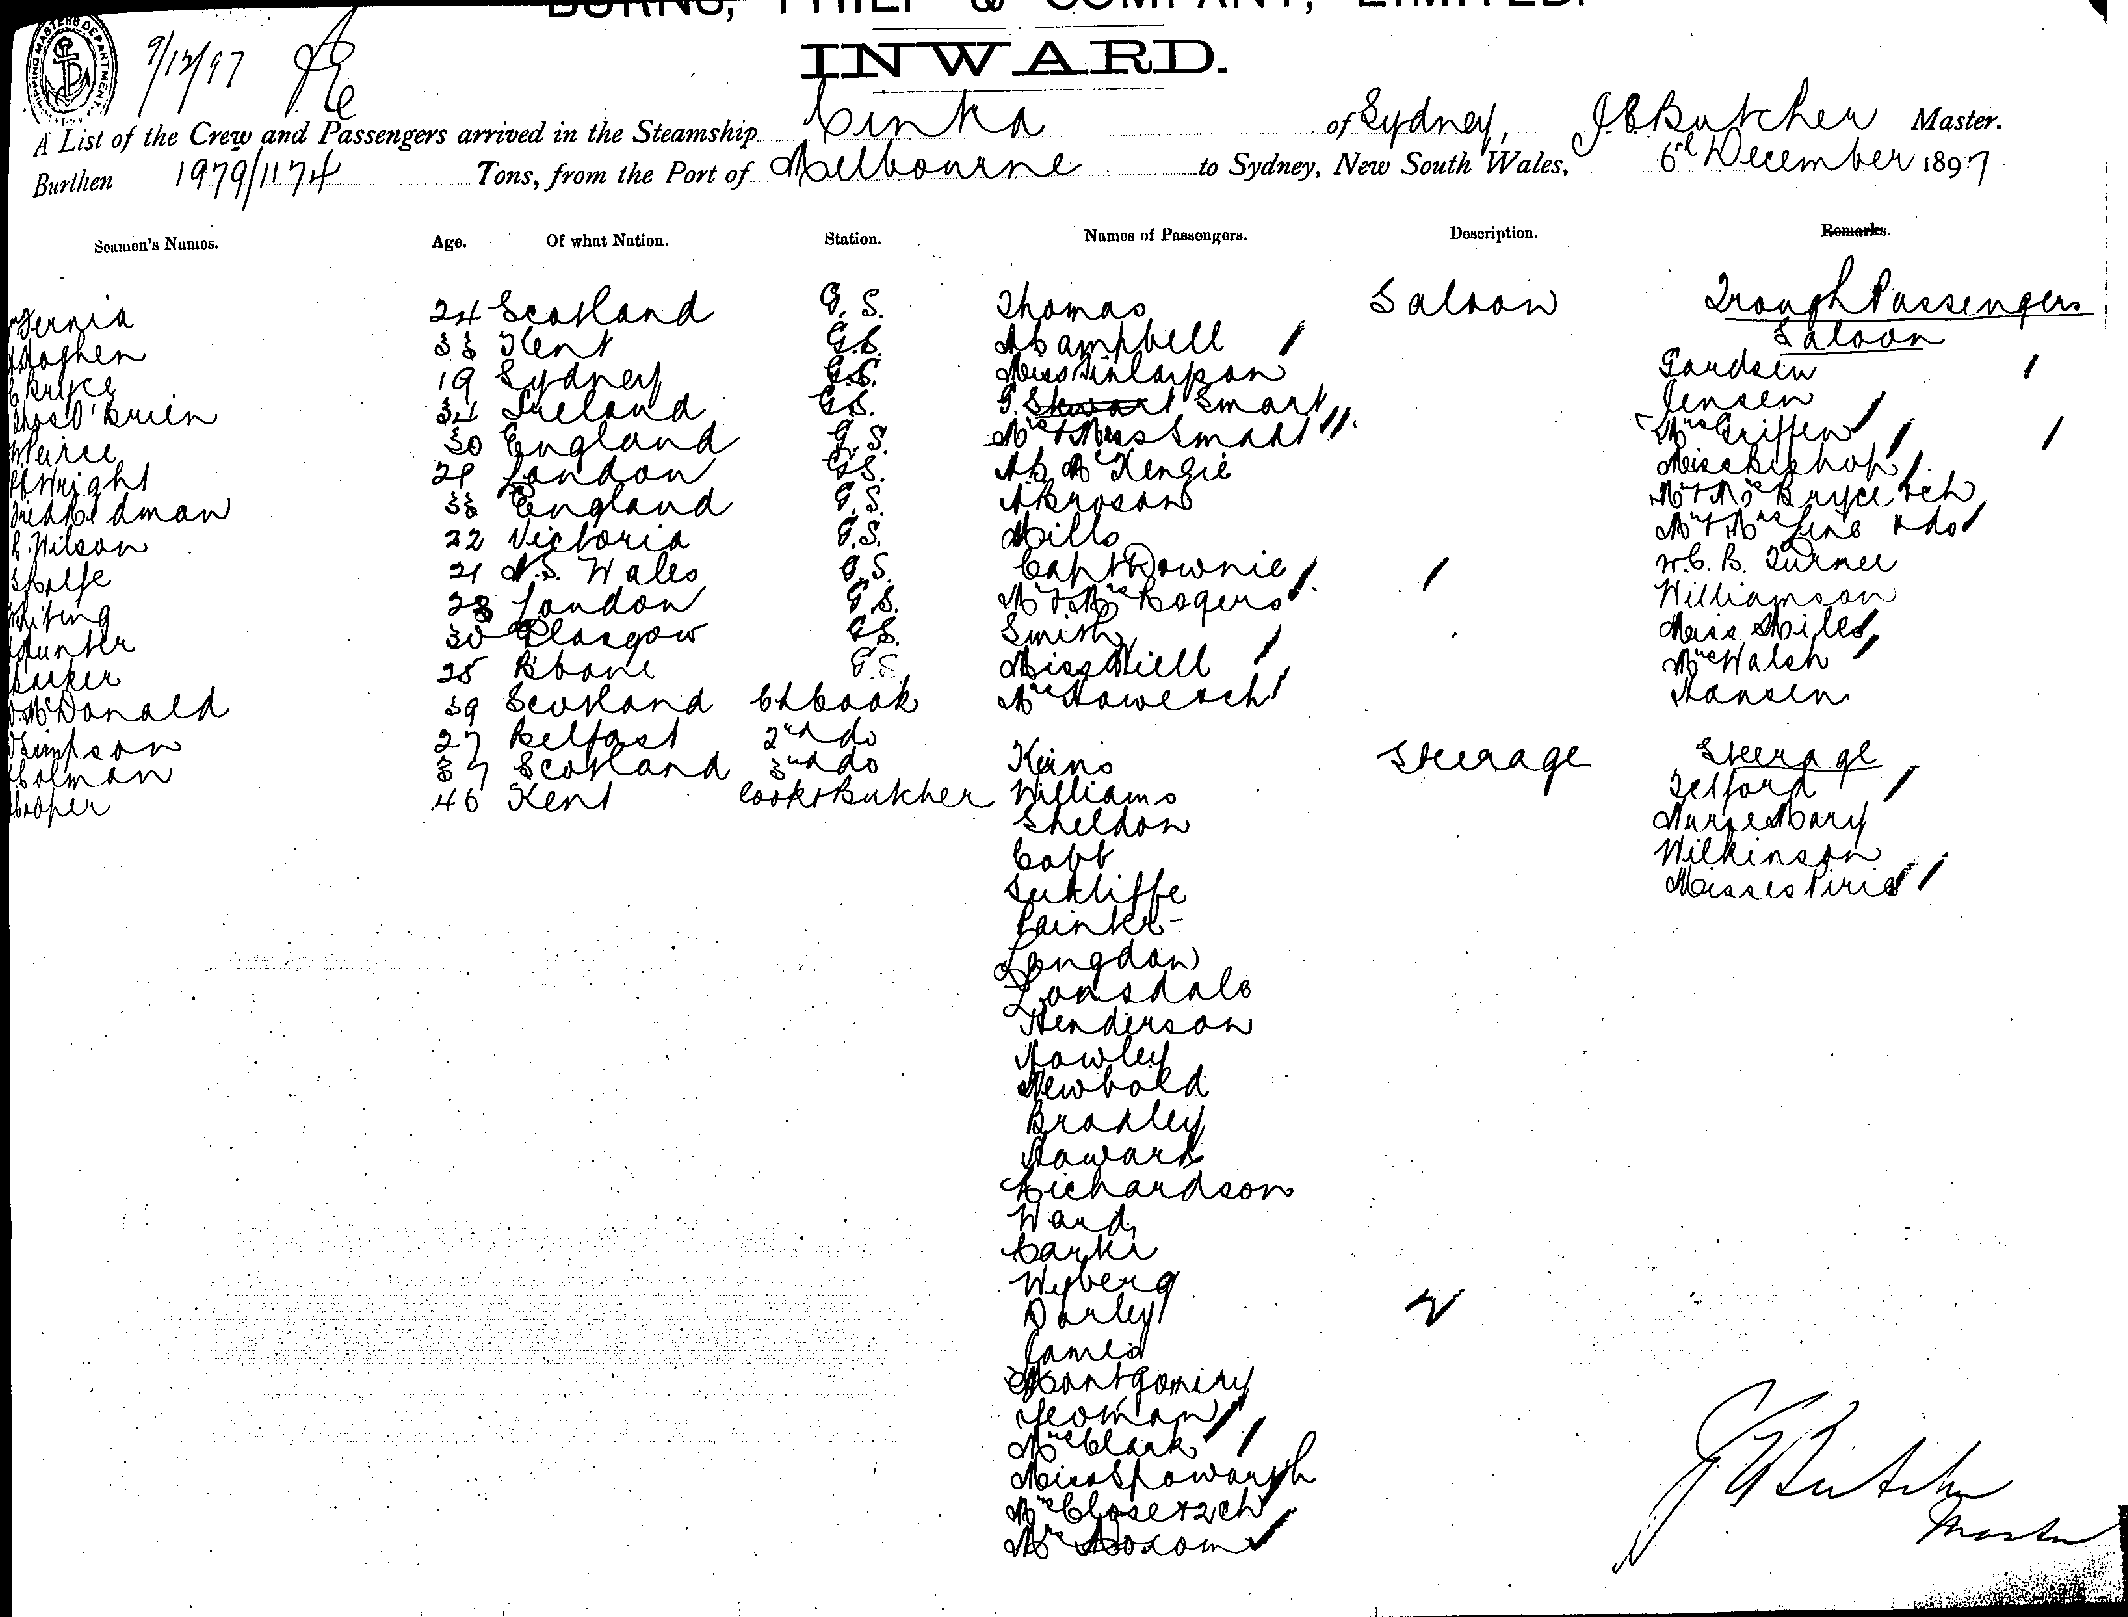 BURNS, PHILP & COMPANY, LIMITED.
INWARD.
9/12/97
A List of the Crew and Passengers arrived in the Steamship Cintra of Sydney, J.C Butcher Master.
Burthen 1979/1174 Tons, from the Port of Melbourne to Sydney, New South Wales, 6th December 1897
Seamen's Names. Age. Of what Nation. Station. Names of Passengers. Description. Remarks.
24 Scotland G.S. Thomas Saloon Trough Passengers
33 Kent G.S. A Campbell Saloon
19 Sydney G.S. Miss Gardsen
O'Brien 34 Ireland G.S. G. Stewart Smart Jensen
Peirce 30 England G.S. Mrs & Miss Smart Mrs Griffen
Wright 21 London G.S. McKenzie Miss Bishop
Redman 33 England G.S. Mr & Mrs Bryce & ch
R. Wilson 22 Victoria G.S. Mills Mr & Mrs Line & do
21 N.S. Wales G.S. Capt Downie W.C.B. Turner
Whiting 28 London G.S. Mr & Mrs Rogers Williamson
Hunter 30 Glasgow G.S. Smith Miss Miles
Parker 25 Bbane G.S. Miss Niell Mrs Walsh
McDonald 39 Scotland Ch Cook Mrs Hansen
Simpson 27 Belfast 2nd do
Colman 37 Scotland 3rd do Kerns Steerage Steerage
Cooper 46 Kent Cook & Butcher Williams Telford
Sheldon Nurse Mary
Cobb Wilkinson
Sutcliffe Misses Pirie
Painter
Langdon
Lonsdale
Henderson
Hawley
Newbold
Bradley
Howard
Richardson
Ward
Wyberg
Darley
James
Montgomiry
Yeoman
Mrs Clark
Miss Spowarth
Mrs Close & 2 ch
Mrs
J C Butcher
Master